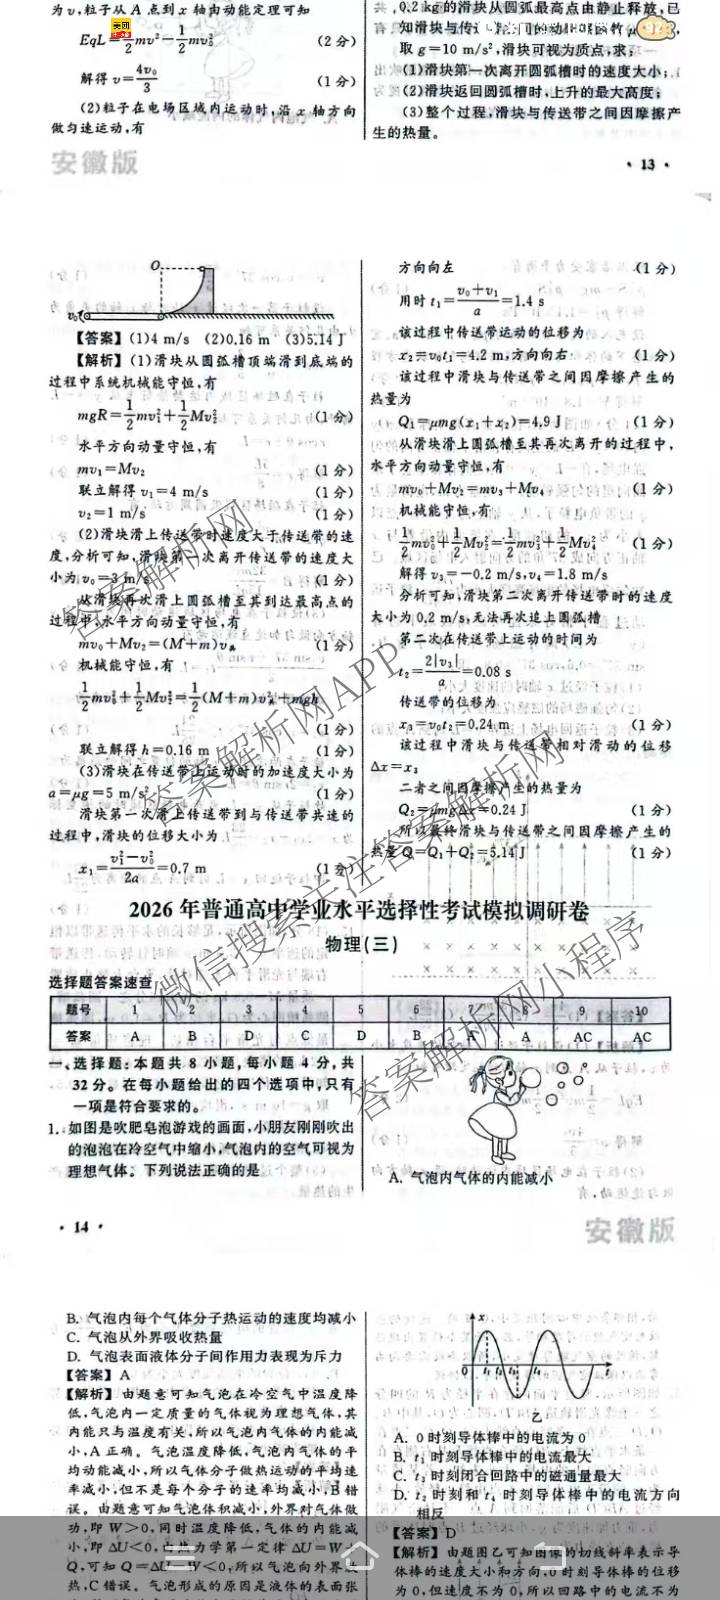 为v,粒子从A点到x轴由动能定理可知
EqL=1/2mv²-1/2mv₀² (2分)
解得v=4v₀/3 (1分)
(2)粒子在电场区域内运动时,沿x轴方向
做匀速运动,有
0.2kg的滑块从圆弧最高点由静止释放,已
取g=10m/s²,滑块可视为质点,求:
(1)滑块第一次离开圆弧槽时的速度大小;
(2)滑块返回圆弧槽时,上升的最大高度;
(3)整个过程,滑块与传送带之间因摩擦产
生的热量。
安徽版
·13·
O
v₀
【答案】(1)4m/s (2)0.16m (3)5.14J
【解析】(1)滑块从圆弧槽顶端滑到底端的
过程中系统机械能守恒,有
mgR=1/2mv₁²+1/2Mv₂² (1分)
水平方向动量守恒,有
mv₁=Mv₂ (1分)
联立解得v₁=4m/s (1分)
v₂=1m/s (1分)
(2)滑块滑上传送带时速度大于传送带的速
度,分析可知,滑块第一次离开传送带的速度大
小为v₀=3m/s (1分)
从滑块再次滑上圆弧槽至其到达最高点的
过程中,水平方向动量守恒,有
mv₀+Mv₂=(M+m)v共 (1分)
机械能守恒,有
1/2mv₀²+1/2Mv₂²=1/2(M+m)v共²+mgh
(1分)
联立解得h=0.16m (1分)
(3)滑块在传送带上运动时的加速度大小为
a=μg=5m/s² (1分)
滑块第一次滑上传送带到与传送带共速的
过程中,滑块的位移大小为
x₁=(v₁²-v₀²)/2a=0.7m (1分)
方向向左 (1分)
用时t₁=(v₀+v₁)/a=1.4s
该过程中传送带运动的位移为
x₂=v₀t₁=4.2m,方向向右 (1分)
该过程中滑块与传送带之间因摩擦产生的
热量为
Q₁=μmg(x₁+x₂)=4.9J (1分)
从滑块滑上圆弧槽至其再次离开的过程中,
水平方向动量守恒,有
mv₀+Mv₂=mv₃+Mv₄ (1分)
机械能守恒,有
1/2mv₀²+1/2Mv₂²=1/2mv₃²+1/2Mv₄² (1分)
解得v₃=-0.2m/s,v₄=1.8m/s
分析可知,滑块第二次离开传送带时的速度
大小为0.2m/s,无法再次追上圆弧槽
第二次在传送带上运动的时间为
t₂=2|v₃|/a=0.08s
传送带的位移为
x₃=v₀t₂=0.24m (1分)
该过程中滑块与传送带相对滑动的位移
Δx=x₃
二者之间因摩擦产生的热量为
Q₂=μmgΔx=0.24J (1分)
所以最终滑块与传送带之间因摩擦产生的
热量Q=Q₁+Q₂=5.14J (1分)
答案解析网
答案解析网APP
微信搜索关注答案解析网
答案解析网小程序
2026年普通高中学业水平选择性考试模拟调研卷
物理(三)
选择题答案速查
题号 1 2 3 4 5 6 7 8 9 10
答案 A B D C D B A A AC AC
一、选择题:本题共8小题,每小题4分,共
32分。在每小题给出的四个选项中,只有
一项是符合要求的。
1.如图是吹肥皂泡游戏的画面,小朋友刚刚吹出
的泡泡在冷空气中缩小,气泡内的空气可视为
理想气体。下列说法正确的是
A. 气泡内气体的内能减小
·14·
安徽版
B. 气泡内每个气体分子热运动的速度均减小
C. 气泡从外界吸收热量
D. 气泡表面液体分子间作用力表现为斥力
【答案】A
【解析】由题意可知气泡在冷空气中温度降
低,气泡内一定质量的气体视为理想气体,其
内能只与温度有关,所以气泡内气体的内能减
小,A正确。气泡温度降低,气泡内气体的平
均动能减小,所以气体分子做热运动的平均速
率减小,但不是每个分子的速率均减小,B错
误。由题意可知气泡体积减小,外界对气体做
功,即W>0,同时温度降低,气体的内能减
小,即ΔU<0,由热力学第一定律ΔU=W+
Q,可知Q=ΔU-W<0,所以气泡向外界放
热,C错误。气泡形成的原因是液体的表面张
x
t₁ t₂ t₃ t₄ t
乙
A. 0时刻导体棒中的电流为0
B. t₁时刻导体棒中的电流最大
C. t₂时刻闭合回路中的磁通量最大
D. t₂时刻和t₄时刻导体棒中的电流方向
相反
【答案】D
【解析】由题图乙可知图像的切线斜率表示导
体棒的速度大小和方向,0时刻导体棒的位移
为0,但速度不为0,所以回路中的电流不为